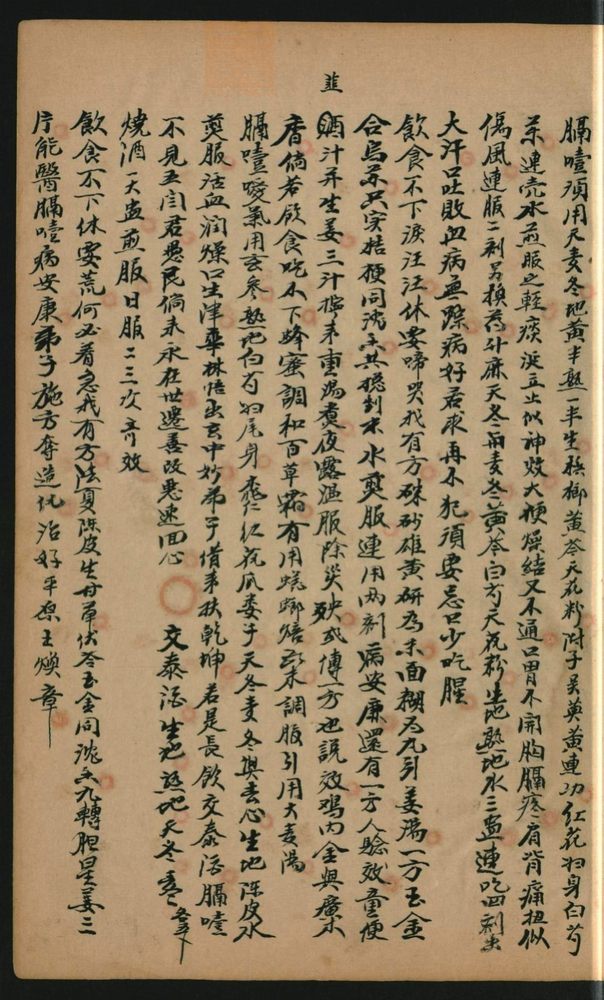 韭
膈噎須用天麦冬地黄半熟一半生梹榔黄芩天花粉附子吴萸黄連功红花归身白芍
茶連売水煎服之軽痰涎立止似神效大梗燥結又不通口胃不開胸膈疼肩背痛扭似
傷風連服二剂另換药升麻天冬兩麦冬黄芩白芍天花粉生地熟地水三盅連吃四剂出
大汗口吐敗血病無踪病好君求再不犯須要忌口少吃腥
飲食不下淚汪汪休要啼哭我有方硃砂雄黄研為末面糊為九引姜湯一方玉金
合烏茶共实桔梗同沈香共穏到末水煎服連用兩剂病安康還有一方人騐效童便
酒汁并生姜三汁擰来重湯煮夜露温服除災殃或傳一方也說效鸡内金與廣木
香倘若飲食吃不下蜂蜜調和百草霜有用蜣螂焙末調服引用大麦湯
膈噎嗳氣用玄參熟地白芍归尾身桃仁红花瓜蒌子天冬麦冬與去心生地陈皮水
煎服活血润燥口生津華林悟出玄中妙弟子借来扶乾坤若是長飲交泰酒膈噎
不見五閻君愚民倘未永在世遷善改悪速回心 交泰酒生地熟地天冬麦冬
燒酒一大盅煎服日服二三次奇效
飲食不下休要荒何必着急我有方法夏陈皮生甘草伏苓玉金同沈香九轉胆星姜三
片能醫膈噎病安康弟子施方奪造化治好平息王煥章